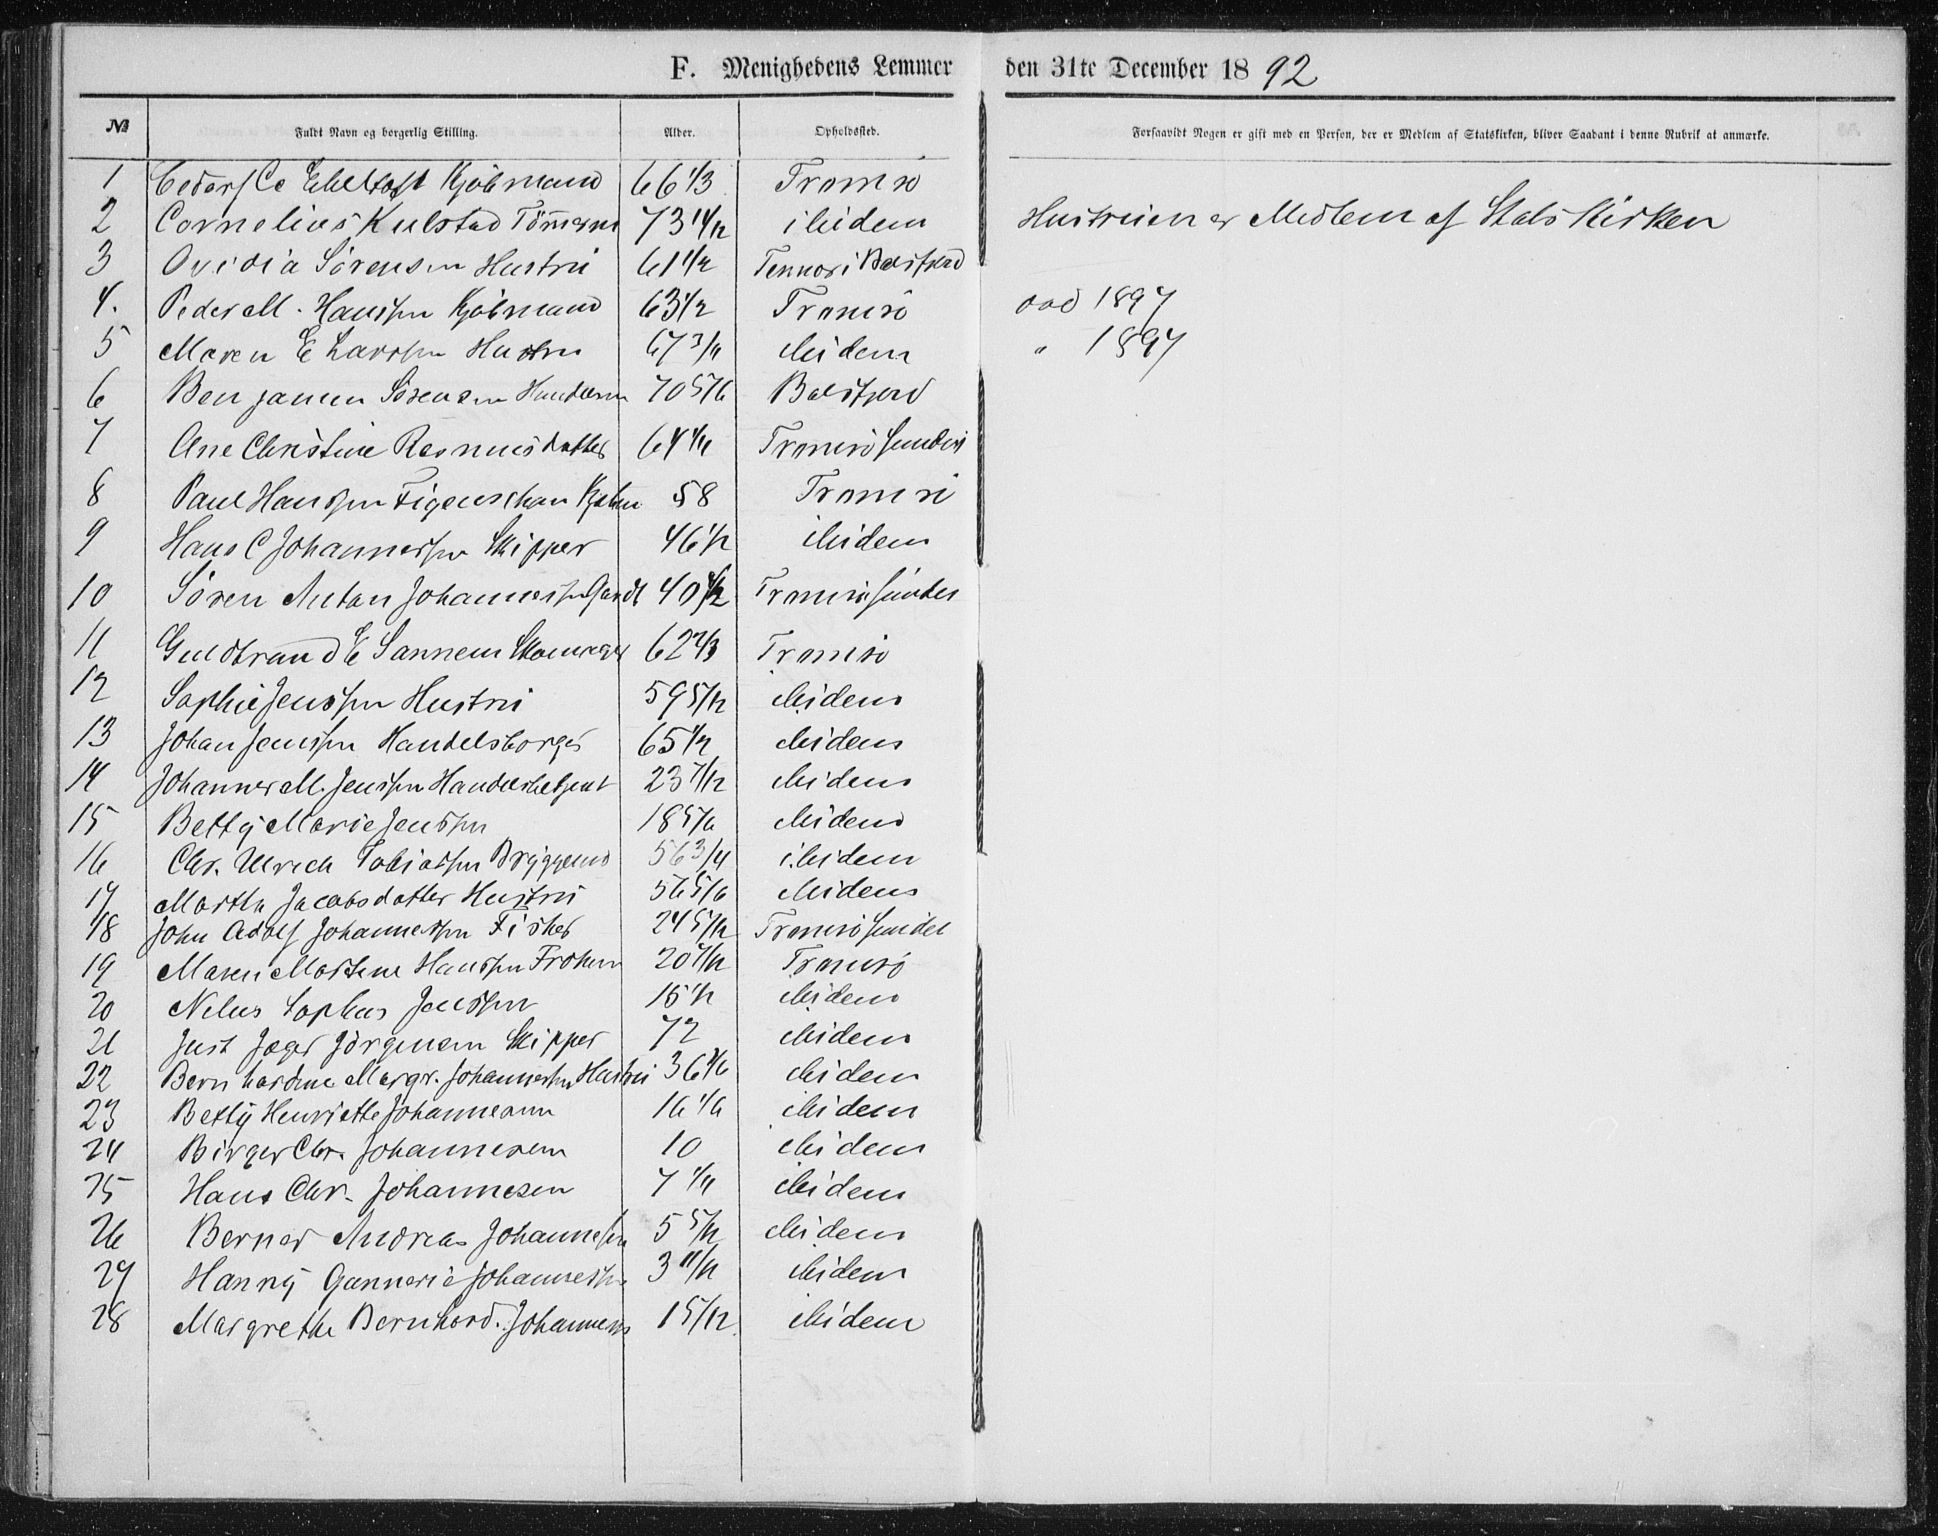 F. Menighedens Lemmer den 31te December 1892
№ Fuldt Navn og borgerlig Stilling. Alder. Opholdssted. Forsaavidt Nogen er gift med en Person, der er Medlem af Statskirken, bliver Saadant i denne Rubrik at anmærke.
1 Ebeltoft Kjöbmand 66 1/3 Tromsö
2 Cornelius Kulstad 73 11/12 ibidem Hustruen er Medlem af Statskirken
3 Ovidia Sörensen Hustru 61 1/2 Tennes i Balsfjord
4. Peder M. Hanssen Kjöbmand 63 1/2 Tromsö död 1897
5 Maren E Larssen Hustru 67 3/4 ibidem " 1897
6 Benjamin Sörensen 70 5/6 Balsfjord
7 Ane Christine Rasmusdatter 64 1/4 Tromsösundet
8 Paul Hanssen Figenschau 58 Tromsö
9 Hans C Johannessen Skipper 46 1/2 ibidem
10 Sören Anton Johannessen 40 Tromsösundet
11 Guldbrand E Sannem Skomager 62 2/3 Tromsö
12 Sophie Jenssen Hustru 59 5/12 ibidem
13 Johan Jenssen Handelsborger 65 1/2 ibidem
14 Johannes M. Jenssen Handelsbetjent 23 7/12 ibidem
15 Betty Marie Jenssen 18 5/6 ibidem
16 Chr. Ulrich Tobiassen 56 3/4 ibidem
17 Martha Jacobsdatter Hustru 56 5/6 ibidem
18 John Adolf Johannessen Fisker 24 5/12 Tromsösundet
19 Maren Martine Hanssen 20 7/12 Tromsö
20 Nelus Sophus Jenssen 15 1/2 ibidem
21 Just Jæger Jörgensen Skipper 72 ibidem
22 Bernhardine Margr. Johannessen Hustru 36 ibidem
23 Betty Henriette Johannessen 16 1/6 ibidem
24 Birger Chr. Johannesen 10 ibidem
25 Hans Chr. Johannesen 7 1/4 ibidem
26 Berner Andreas Johannessen 5 5/12 ibidem
27 Hanny Gunnerie Johannessen 3 11/12 ibidem
28 Margrethe Bernhard. Johanness 1 5/12 ibidem